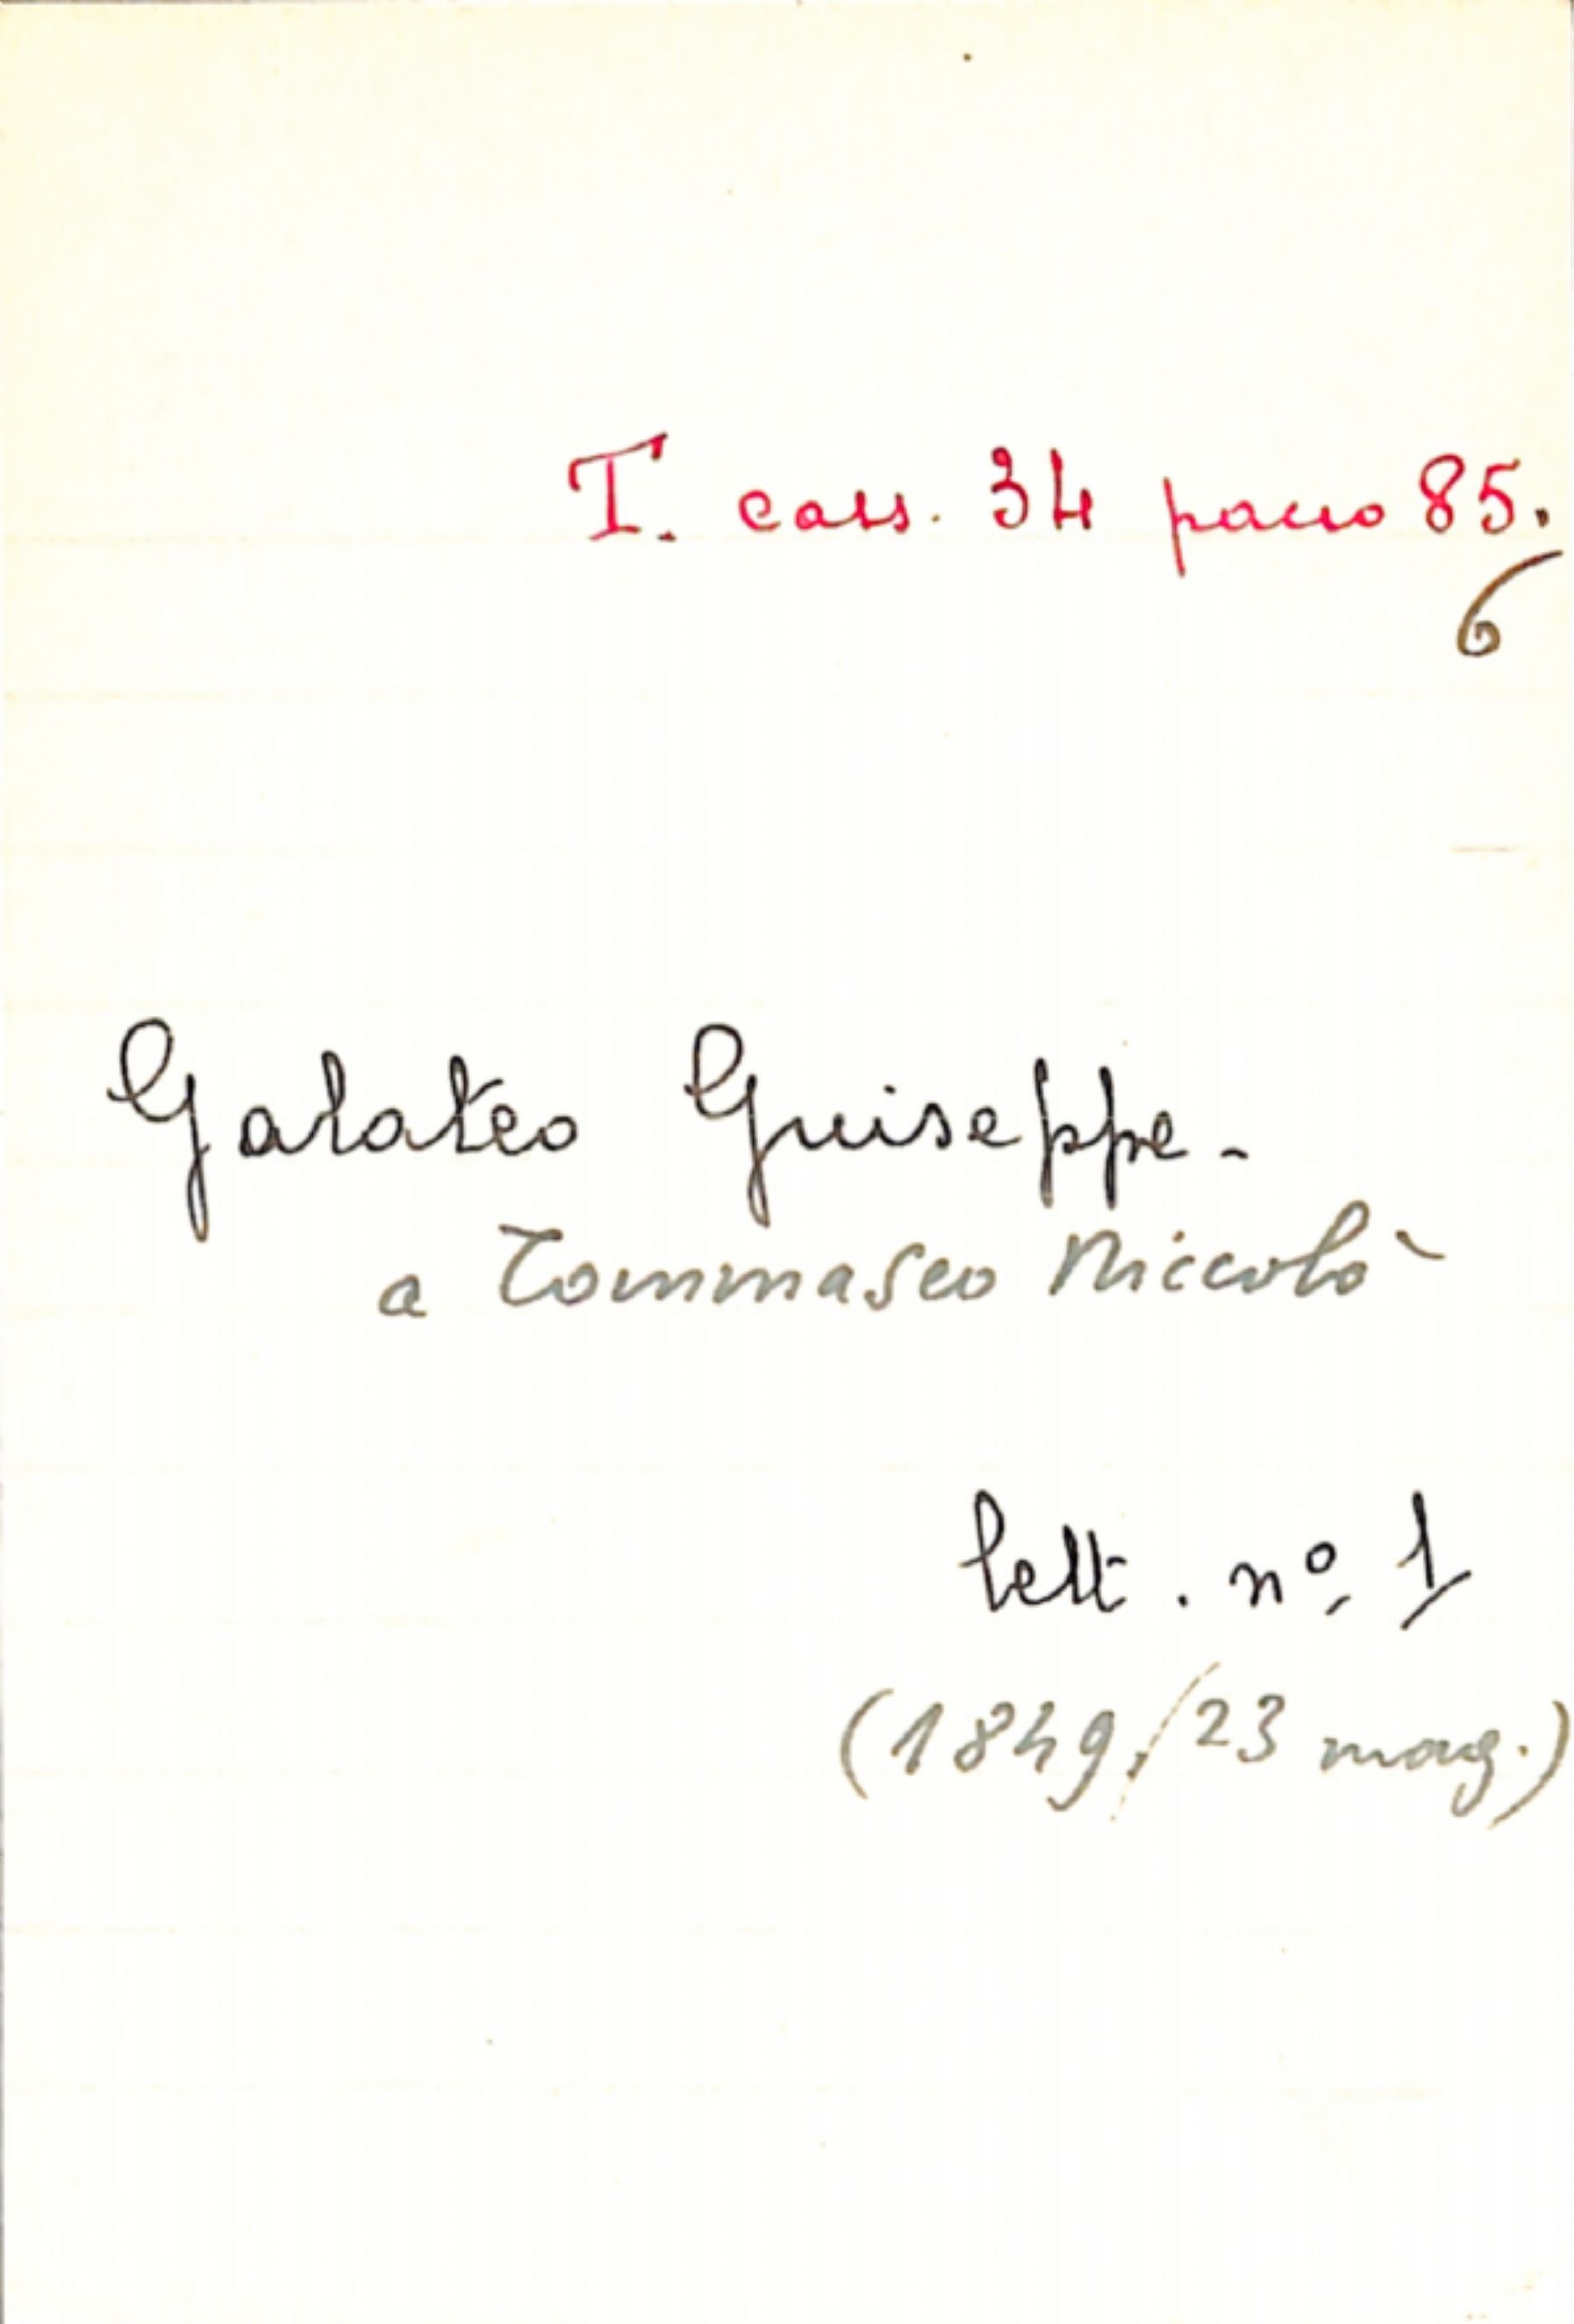 T. cass. 34 pacco 85.
6
Galateo Giuseppe -
a Tommaseo Niccolò
lett. nº 1
(1849, / 23 mag.)